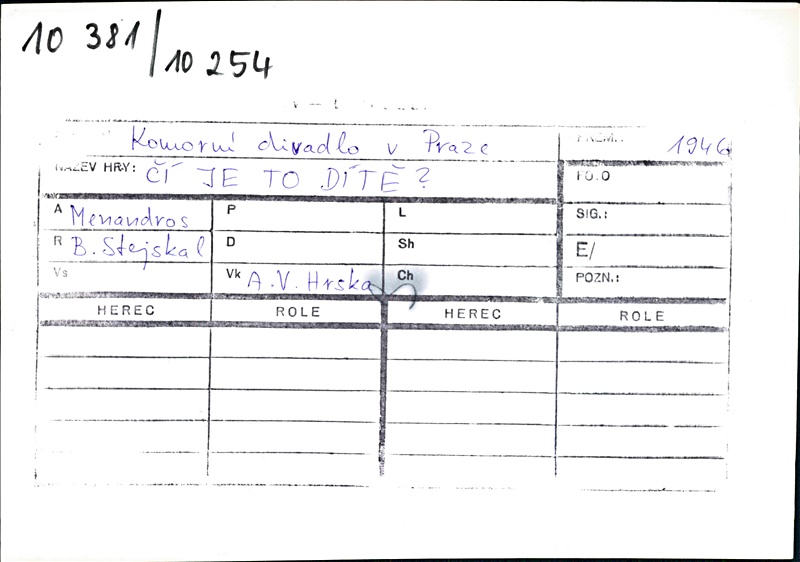 10 381/10 254
Komorní divadlo v Praze
PREM.: 1946
NÁZEV HRY: ČÍ JE TO DÍTĚ?
FOTO
A Menandros P L SIG.:
R B. Stejskal D Sh E/
Vs Vk A.V. Hrska Ch POZN.:
HEREC ROLE HEREC ROLE